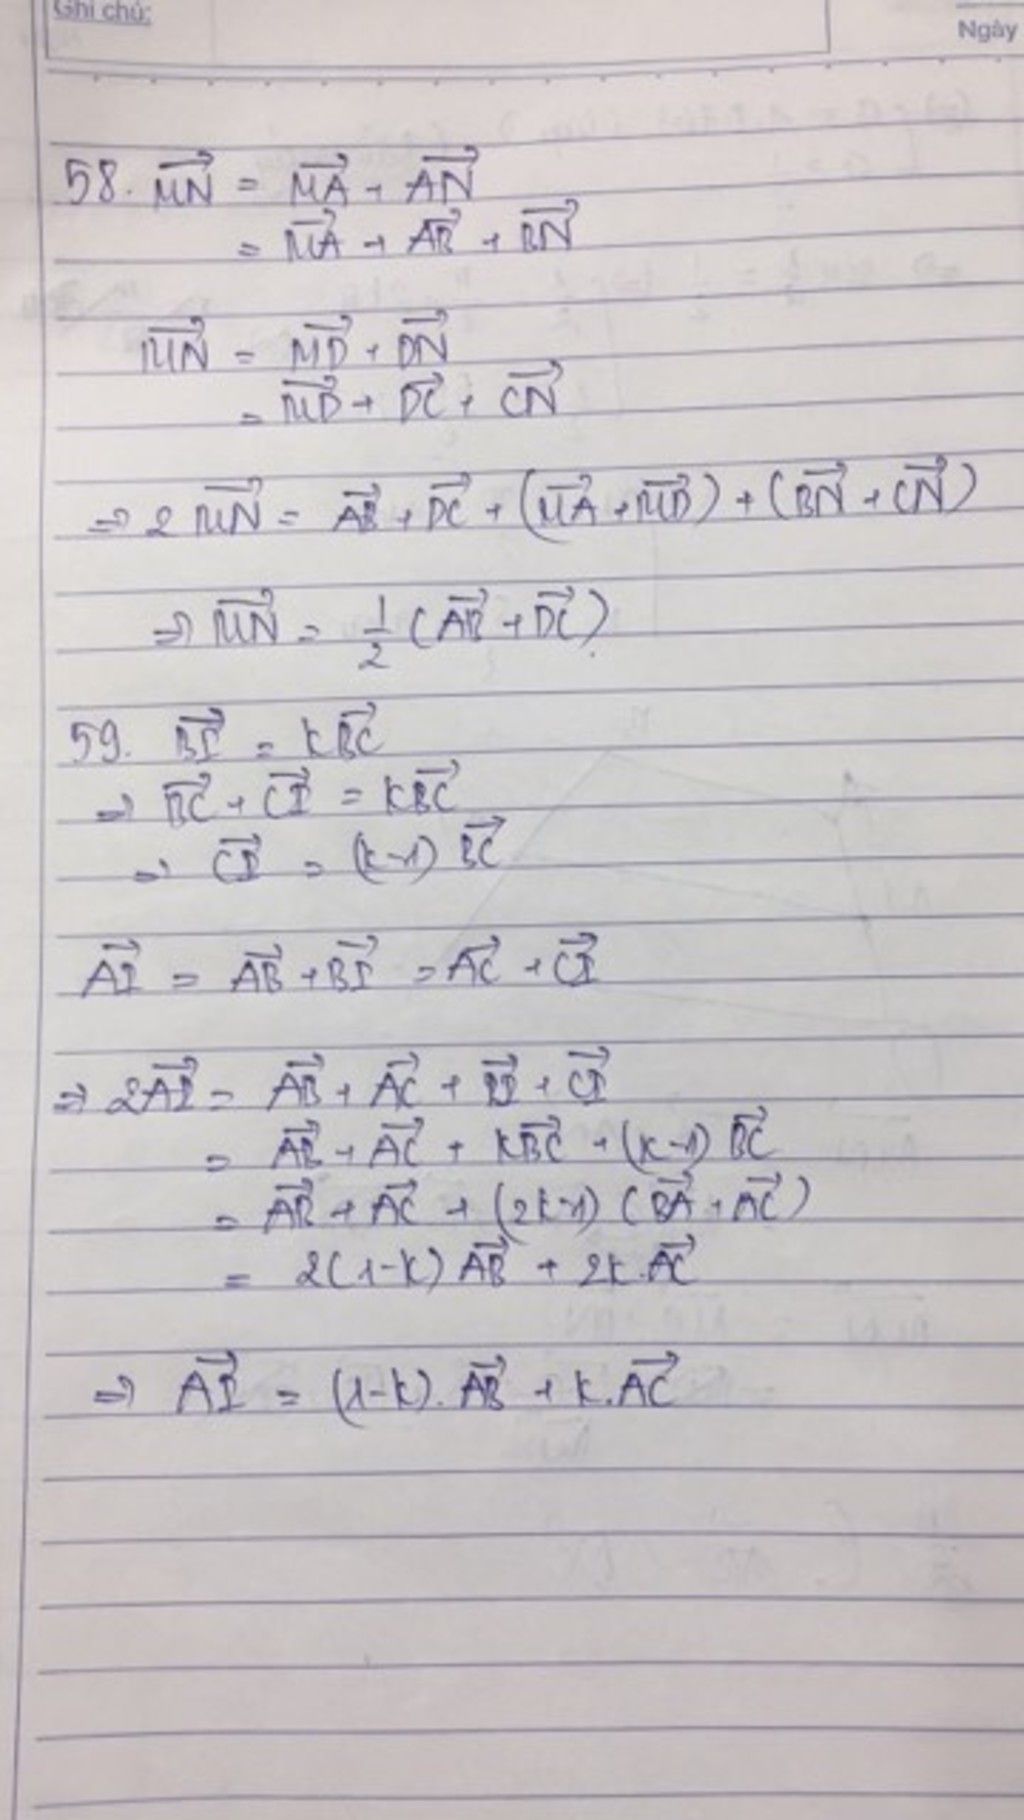 Ghi chú:
Ngày
58. \vec{MN} = \vec{MA} + \vec{AN}
= \vec{MA} + \vec{AB} + \vec{BN}
\vec{MN} = \vec{MD} + \vec{DN}
= \vec{MD} + \vec{DC} + \vec{CN}
⇒ 2\vec{MN} = \vec{AB} + \vec{DC} + (\vec{MA} + \vec{MD}) + (\vec{BN} + \vec{CN})
⇒ \vec{MN} = \frac{1}{2} (\vec{AB} + \vec{DC}).
59. \vec{BI} = k\vec{BC}
⇒ \vec{BC} + \vec{CI} = k\vec{BC}
⇒ \vec{CI} = (k-1) \vec{BC}
\vec{AI} = \vec{AB} + \vec{BI} = \vec{AC} + \vec{CI}
⇒ 2\vec{AI} = \vec{AB} + \vec{AC} + \vec{BI} + \vec{CI}
= \vec{AB} + \vec{AC} + k\vec{BC} + (k-1) \vec{BC}
= \vec{AB} + \vec{AC} + (2k-1) (\vec{BA} + \vec{AC})
= 2(1-k) \vec{AB} + 2k.\vec{AC}
⇒ \vec{AI} = (1-k).\vec{AB} + k.\vec{AC}